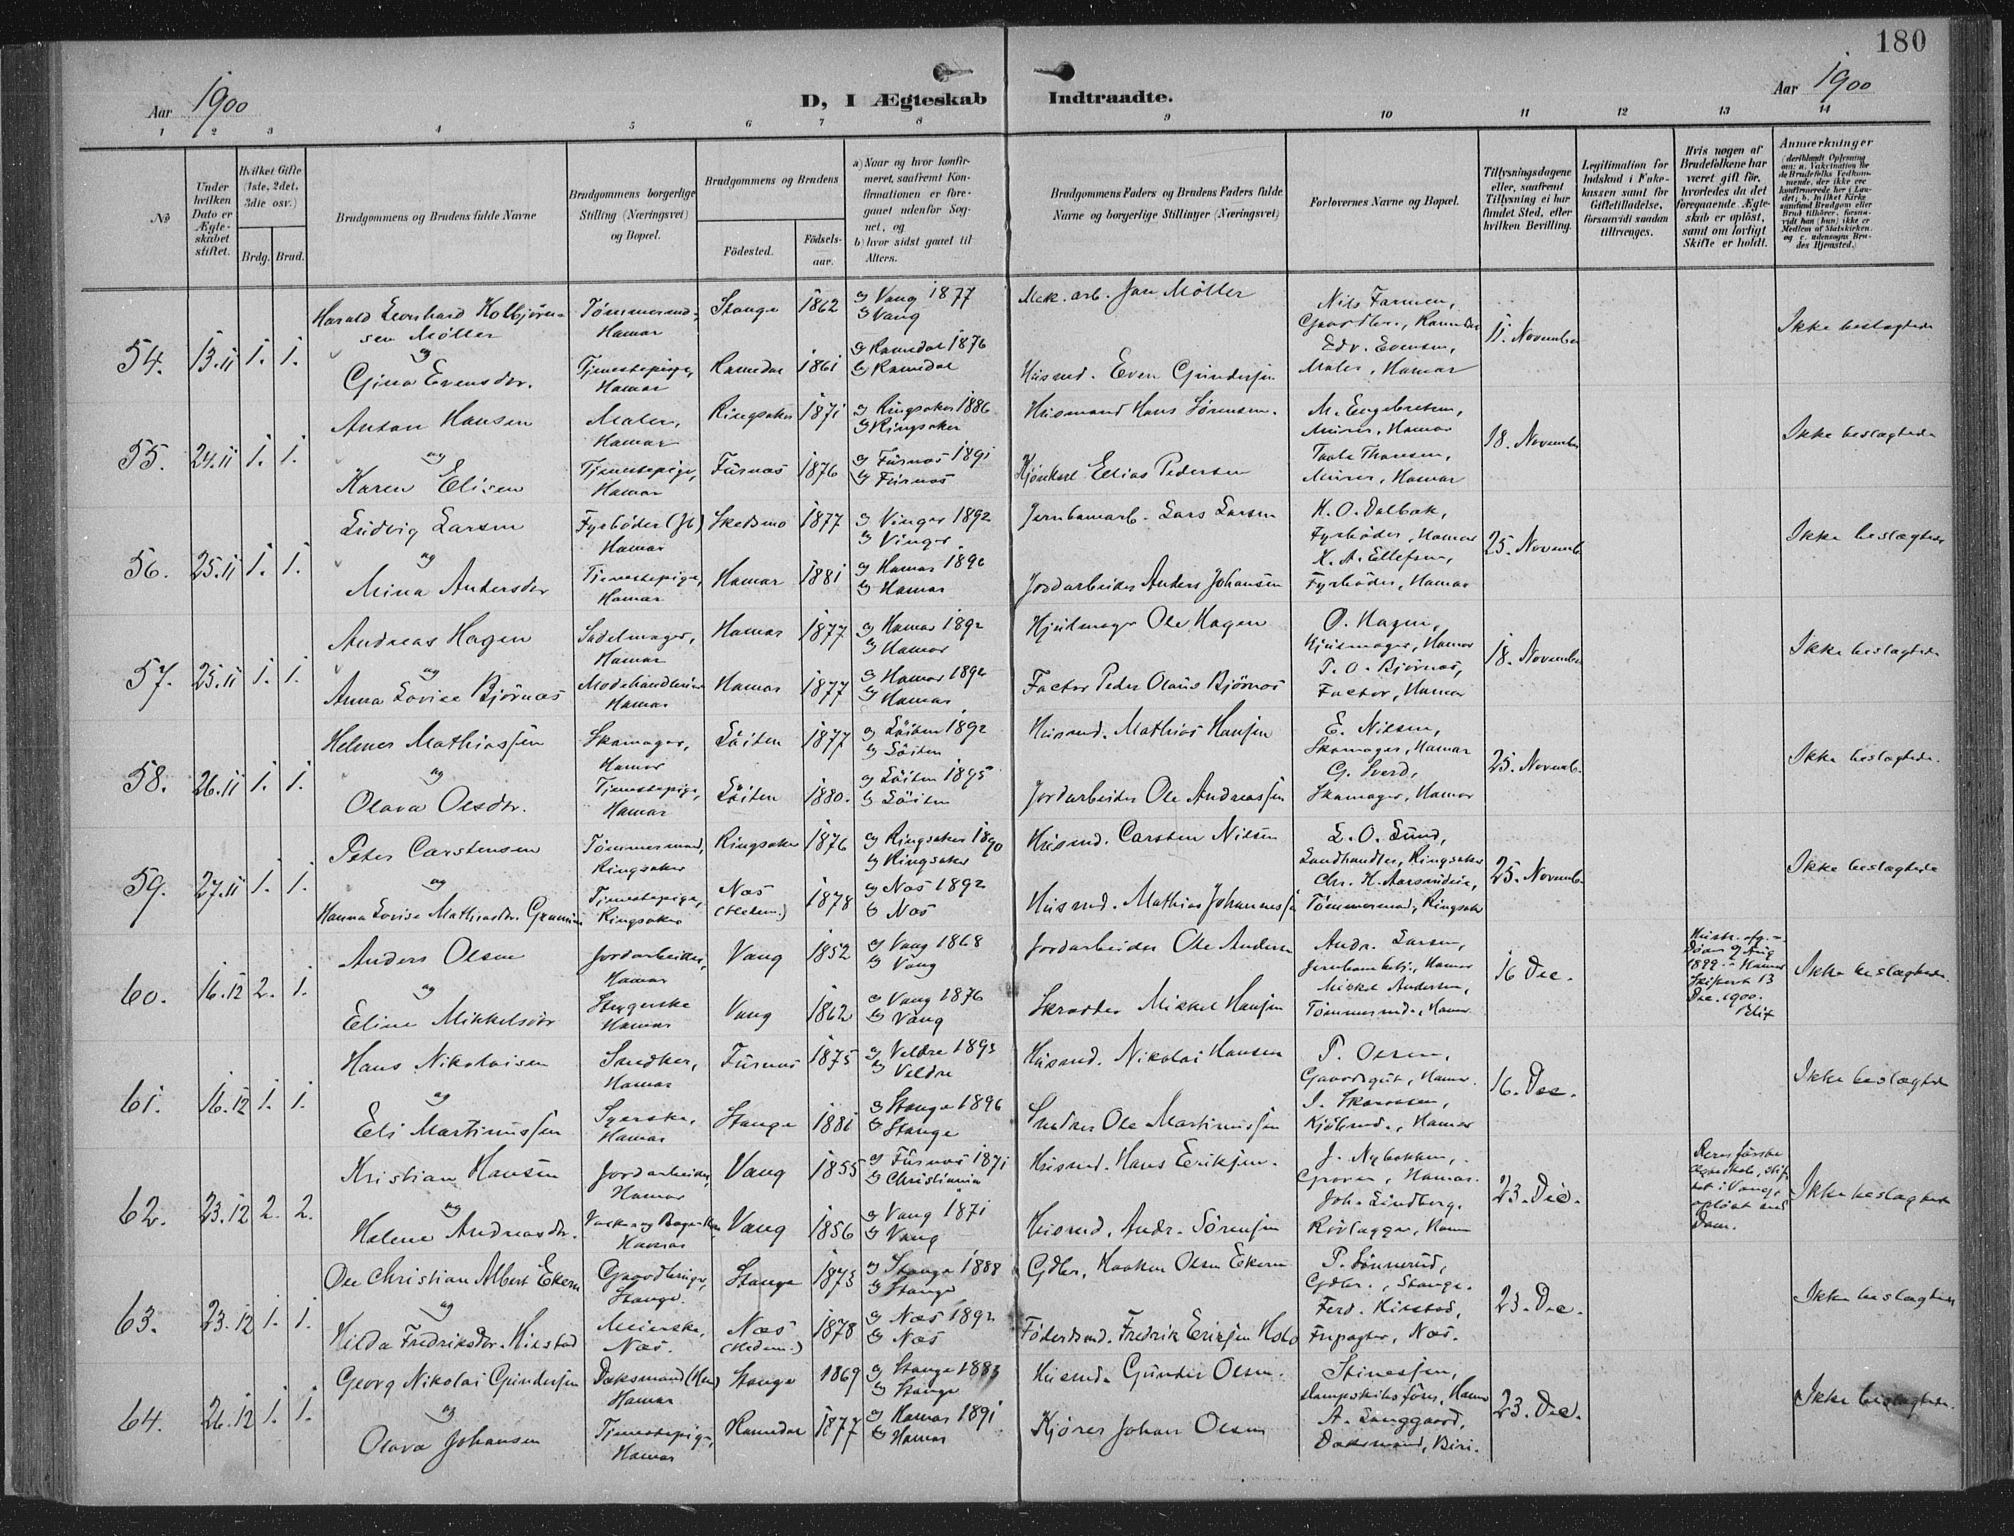 180
Aar 1900
D, I Ægteskab Indtraadte.
Aar 1900
1 2 3 4 5 6 7 8 9 10 11 12 13 14
No
Under hvilken Dato er Ægteskabet stiftet.
Hvilket Gifte (1ste, 2det, 3die osv.)
Brdg. Brud.
Brudgommens og Brudens fulde Navne
Brudgommens borgerlige Stilling (Næringsvei) og Bopæl.
Brudgommens og Brudens
Födested.
Födselsaar.
a) Naar og hvor konfirmeret, saafremt Konfirmationen er foregaaet udenfor Sognet, og
b) hvor sidst gaaet til Alters.
Brudgommens Faders og Brudens Faders fulde Navne og borgerlige Stillinger (Næringsvei)
Forlovernes Navne og Bopæl.
Tillysningsdagene eller, saafremt Tillysning ei har fundet Sted, efter hvilken Bevilling.
Legitimation for Indskud i Enkekassen samt for Giftetilladelse, forsaavidt saadan tiltrænges.
Hvis nogen af Brudefolkene har været gift för, hvorledes da det foregaaende Ægteskab er oplöst, samt om lovligt Skifte er holdt.
Anmærkninger
54. 13.11 1. 1.
Harald Leonhard Kolbjørnsen Møller
Tömmermd., Hamar
Stange 1862
a) Vang 1877
b) Vang
Mek. arb. Jan Møller
Nils Farmen,
Gaardbr., Romedal
11. November
Ikke beslægtede
og
Gina Evensdtr.
Tjenestepige, Hamar
Romedal 1861
a) Romedal 1876
b) Romedal
Husmd. Even Gundersen
Edv. Evensen,
Maler, Hamar
55. 24.11 1. 1.
Anton Hansen
Maler, Hamar
Ringsaker 1871
a) Ringsaker 1886
b) Ringsaker
Husmand Hans Sørensen.
M. Engebretsen,
Murer, Hamar
18. November
Ikke beslægtede
og
Karen Elisen
Tjenestepige, Hamar
Furnæs 1876
a) Furnæs 1891
b) Furnæs
Elias Pedersen
Thoresen,
Murer, Hamar
56. 25.11 1. 1.
Ludvig Larsen
Fyrböder (Jb) Hamar
Skedsmo 1877
a) Vinger 1892
b) Vinger
Jernbanearb. Lars Larsen
K. O. Dalbak,
Fyrböder, Hamar
25. Novemb.
Ikke beslægtede
og
Mina Andersdtr
Tjenestepige, Hamar
Hamar 1881
a) Hamar 1896
b) Hamar
Jordarbeider Anders Johansen
K. A. Ellefsen,
Fyrböder, Hamar
57. 25.11 1. 1.
Andreas Hagen
Sadelmager, Hamar
Hamar 1877
a) Hamar 1892
b) Hamar
Hjulmager Ole Hagen
O. Hagen,
Hjulmager, Hamar
18. November
Ikke beslægtede
og
Anna Lovise Bjørnæs
Modehandlerinde Hamar
Hamar 1877
a) Hamar 1892
b) Hamar
Factor Peder Olaus Bjørnæs
P. O. Bjørnæs,
Factor, Hamar
58. 26.11 1. 1.
Helmer Mathiassen
Skomager, Hamar
Löiten 1877
a) Löiten 1892
b) Löiten
Husmd. Mathias Hansen
E. Nilsen,
Skomager, Hamar
25. Novemb.
Ikke beslægtede.
og
Olava Olsdtr.
Tjenestepige, Hamar
Löiten 1880.
a) Löiten 1895
b) Löiten
Jordarbeider Ole Andreassen
G. Sverd,
Skomager, Hamar
59. 27.11 1. 1.
Peter Carstensen
Tömmermand, Ringsaker
Ringsaker 1876
a) Ringsaker 1890
b) Ringsaker
Husmd. Carsten Nilsen
L. O. Lund,
Landhandler, Ringsaker
25. Novemb.
Ikke beslægtede
og
Hanna Lovise Mathiasdtr.
Tjenestepige, Ringsaker
Næs (Hedem.) 1878
a) Næs 1892
b) Næs
Husmd. Mathias Johannessen
Chr. H.
Tömmermand, Ringsaker
60. 16.12 2. 1.
Anders Olsen
Jordarbeider, Hamar
Vang 1852
a) Vang 1868
b) Vang
Jordarbeider Ole Andersen
Andr. Larsen,
Jernbanebetj., Hamar
16 Dec.
Hustr. afg.
1899 i Hamar
13 Dec. 1900.
Ikke beslægtede.
og
Eline Mikkelsdtr
Strygerske Hamar
Vang 1862
a) Vang 1876
b) Vang
Skrædder Mikkel Hansen
Mikkel Andersen,
Tömmermd., Hamar
61. 16.12 1. 1.
Hans Nikolaisen
Snedker, Hamar
Furnæs 1875
a) Veldre 1893
b) Veldre
Husmd. Nikolai Hansen
P. Olsen,
Gaardsgut, Hamar.
16. Dec.
Ikke beslægtede
og
Eli Martinussen
Syerske, Hamar
Stange 1881
a) Stange 1896
b) Stange
Ole Martinussen
Kjöbmd., Hamar
62. 23.12 2. 2.
Kristian Hansen
Jordarbeider, Hamar
Vang 1855
a) Furnæs 1871
b) Christiania
Husmd. Hans Eriksen.
J. Nybakken,
Graver, Hamar.
23. Dec.
Deres förste Ægteskab, stiftet i Vang, oplöst ved Dom.
Ikke beslægtede
og
Helene Andreasdtr.
Hamar
Vang 1856
a) Vang 1871
b) Vang
Husmd. Andr. Sørensen
Joh. Lindberg.
Hamar
63. 23.12 1. 1.
Ole Christian Albert Ekern
Gaardbruger, Stange.
Stange 1873
a) Stange 1888
b) Stange
Gdbr. Haaken Olsen Ekern
P. Sönnerud,
Gdbr., Stange.
23. Dec.
Ikke beslægtede
og
Hilda Fredriksdtr. Kilstad
Meierske, Næs.
Næs (Hedem.) 1878
a) Næs 1892
b) Næs
Föderaadsmd. Fredrik Eriksen
Ferd. Kilstad,
Forpagter, Næs.
64. 26.12 1. 1.
Georg Nikolai Gundersen
Dæksmand Hamar
Stange 1869
a) Stange 1883
b) Stange
Husmd. Gunder Olsen.
Stinessen,
Dampskibsförer, Hamar
23. Dec.
Ikke beslægtede.
og
Olava Johansen
Tjenestepige, Hamar
Romedal 1877
a) Hamar 1891
b) Hamar
Kjører Johan Olsen
A. Langgaard,
Dæksmand, Biri.